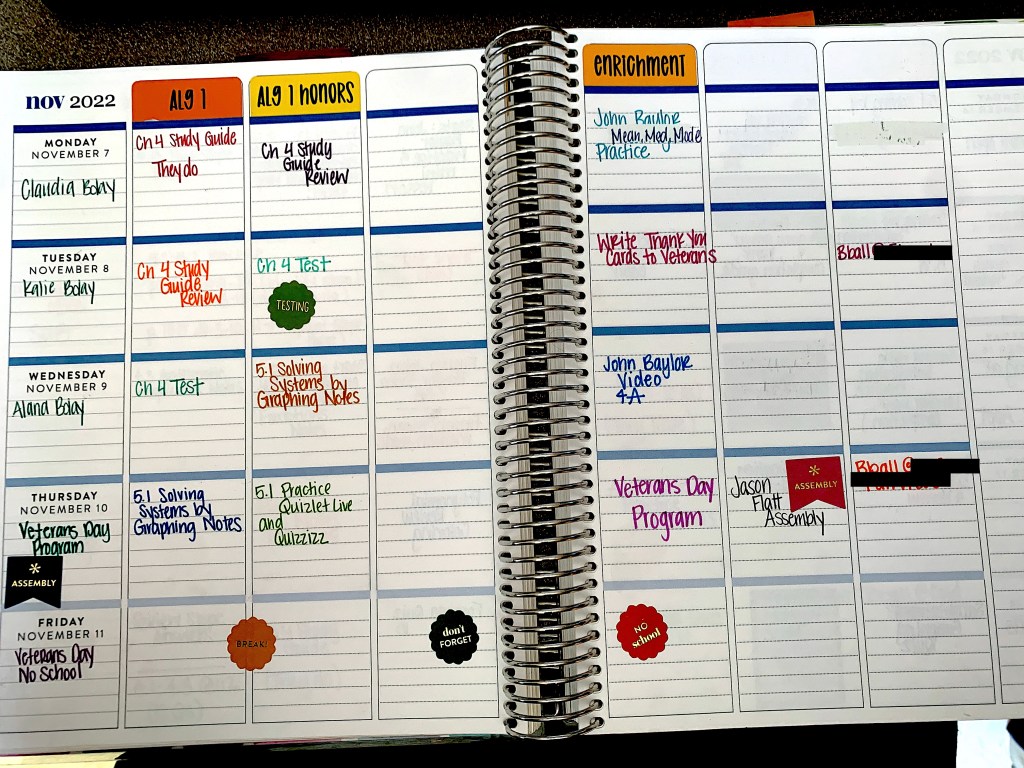 nov 2022
ALG 1
ALG 1 HONORS
ENRICHMENT
MONDAY
NOVEMBER 7
Claudia Bolay
Ch 4 Study Guide
They do
Ch 4 Study
Guide
Review
John Baylor
Mean, Med, Mode
Practice
TUESDAY
NOVEMBER 8
Kalie Bolay
Ch 4 Study
Guide
Review
Ch 4 Test
TESTING
Write Thank You
Cards to Veterans
Bball @
WEDNESDAY
NOVEMBER 9
Alana Bolay
Ch 4 Test
5.1 Solving
Systems by
Graphing Notes
John Baylor
Video
4-A
THURSDAY
NOVEMBER 10
Veterans Day
Program
ASSEMBLY
5.1 Solving
Systems by
Graphing Notes
5.1 Practice
Quizlet Live
and
Quizzizz
Veterans Day
Program
Jason
Flatt
Assembly
ASSEMBLY
Bball @
FRIDAY
NOVEMBER 11
Veterans Day
No School
BREAK!
don't
FORGET
NO
school